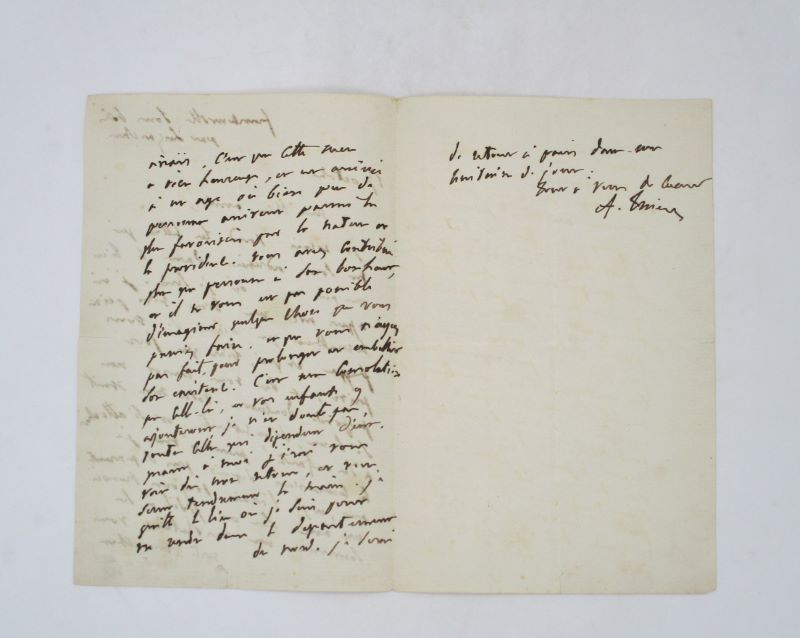 amis, c'est que cette mère
a vécu heureuse, et est arrivée
à un age où bien peu de
personnes arrivent parmi les
plus favorisés par la nature et
la providence. vous avez contribué
plus que personne à son bonheur,
et il ne vous est pas possible
d'imaginer quelque chose que vous
puissiez faire, et que vous n'ayez
pas fait, pour prolonger et embellir
son existence. C'est une consolation
que celle-là, et vos enfants y
ajouteront je n'en doute pas,
toutes celles qui dépendent d'eux.
quant à moi j'irai vous
voir dès mon retour, et vous
serrer tendrement la main. je
quitte le lieu où je suis pour
me rendre dans le département
du nord. je serai
de retour à paris dans une
huitaine de jours.
tout à vous de coeur
A. Thiers